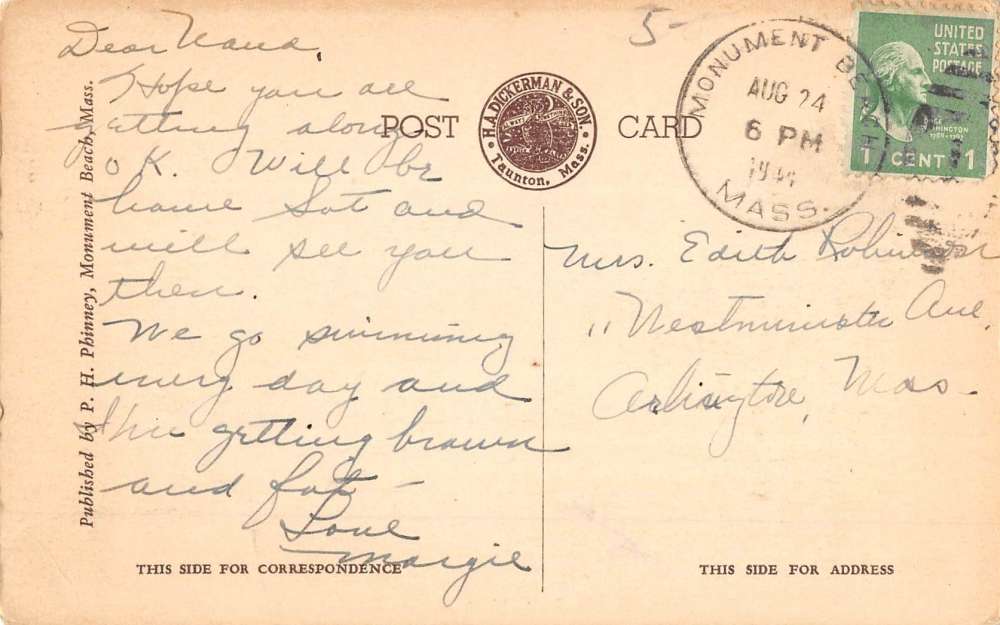 5-
Dear Nana,
Hope you are
getting along
OK. Will be
home Sat and
will see you
then.
We go swimming
every day and
I'm getting brown
and fat -
Love
Margie
Published by P. H. Phinney, Monument Beach, Mass.
POST CARD
H.A. DICKERMAN & SON.
Taunton, Mass.
MONUMENT BEACH
AUG 24
6 PM
MASS.
UNITED
STATES
POSTAGE
WASHINGTON
1 CENT 1
Mrs. Edith Robinson
11 Westminster Ave.
Arlington, Mass.
THIS SIDE FOR CORRESPONDENCE
THIS SIDE FOR ADDRESS